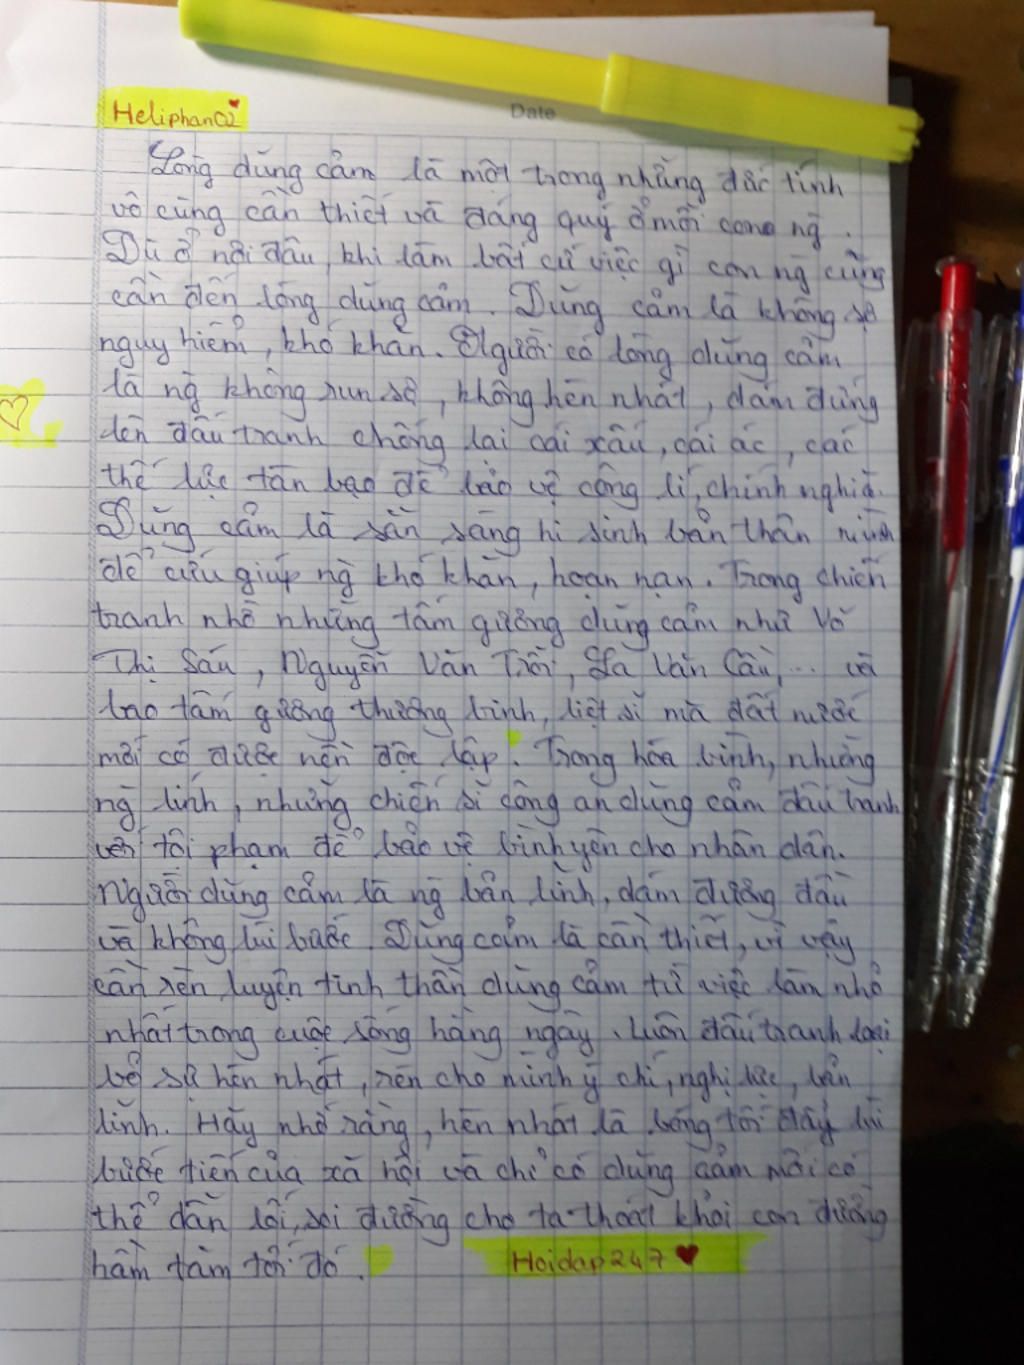 Heliphan02
Date
Lòng dũng cảm là một trong những đức tính
vô cùng cần thiết và đáng quý ở mỗi con ng.
Dù ở nơi đâu, khi làm bất cứ việc gì con ng cũng
cần đến lòng dũng cảm. Dũng cảm là không sợ
nguy hiểm, khó khăn. Người có lòng dũng cảm
là ng không run sợ, không hèn nhát, dám đứng
lên đấu tranh chống lại cái xấu, cái ác, các
thế lực tàn bạo để bảo vệ công lí, chính nghĩa.
Dũng cảm là sẵn sàng hi sinh bản thân mình
để cứu giúp ng khó khăn, hoạn nạn. Trong chiến
tranh nhờ những tấm gương dũng cảm như Võ
Thị Sáu, Nguyễn Văn Trỗi, La Văn Cầu,... và
bao tấm gương thương binh, liệt sĩ mà đất nước
mới có được nền độc lập. Trong hòa bình, những
ng lính, những chiến sĩ công an dũng cảm đấu tranh
với tội phạm để bảo vệ bình yên cho nhân dân.
Người dũng cảm là ng bản lĩnh, dám đương đầu
và không lùi bước. Dũng cảm là cần thiết, vì vậy
cần rèn luyện tinh thần dũng cảm từ việc làm nhỏ
nhất trong cuộc sống hằng ngày. Luôn đấu tranh loại
bỏ sự hèn nhát, rèn cho mình ý chí, nghị lực, bản
lĩnh. Hãy nhớ rằng, hèn nhát là bóng tối đẩy lùi
bước tiến của xã hội và chỉ có dũng cảm mới có
thể dẫn lối, soi đường cho ta thoát khỏi con đường
hầm tăm tối đó.
Hoidap247